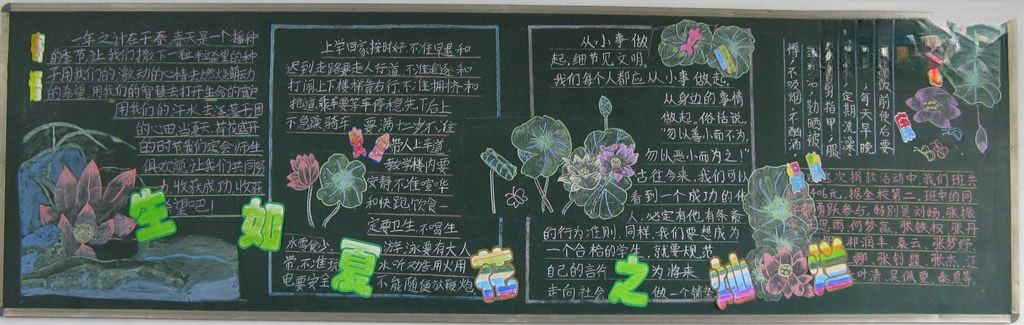 一年之计在于春,春天是一个播种
的季节,让我们撒下一粒粒希望的种
子用我们的激动的心情去燃烧朝动
的希望,用我们的智慧去打开生命的窗户
用我们的汗水去浇灌
的
的时节我们定会师生
俱欢颜,让我们共同努
力,收获成功,收获
希望吧!
上学回家按时好,不准早退和
迟到走路要走人行道,不准追逐和
打闹上下楼梯靠右行,不准拥挤和
抢道乘车要等车停稳先下后上
不急躁骑车 要满十二岁不准
带人上车道
教学楼内要
安静不准喧哗
和快跑饮食一
定要卫生 不喝生
水零食少 游泳要有大人
带,不准玩 水吸对信用火用
电要安全 不能随便放鞭炮
从小事做
起,细节见文明。
我们每个人都应从小事做起,
从身边的事情
做起,俗话说,
“勿以善小而不为,
勿以恶小而为之!”
古往今来,我们可以
看到一个成功的伟
人,必定有他有条紊
的行为准则,同样,我们要想成为
一个合格的学生,就要规范
自己的言行 为将来
走向社会 做一个铺垫
饭前便后要
每天早晚
定期洗澡
剪指甲
勤晒被
不吸烟,不酗酒
次捐款活动中,我们班共
元,据全校第二,班中的同
跃参与,特别是刘畅,张振
雨,何梦蕊,张铁权,张丹
郝泪丰,袁云,张梦婷
娜,张创毅,张杰,江
叶清,吴佩雯,秦昊等
生如夏花之灿烂